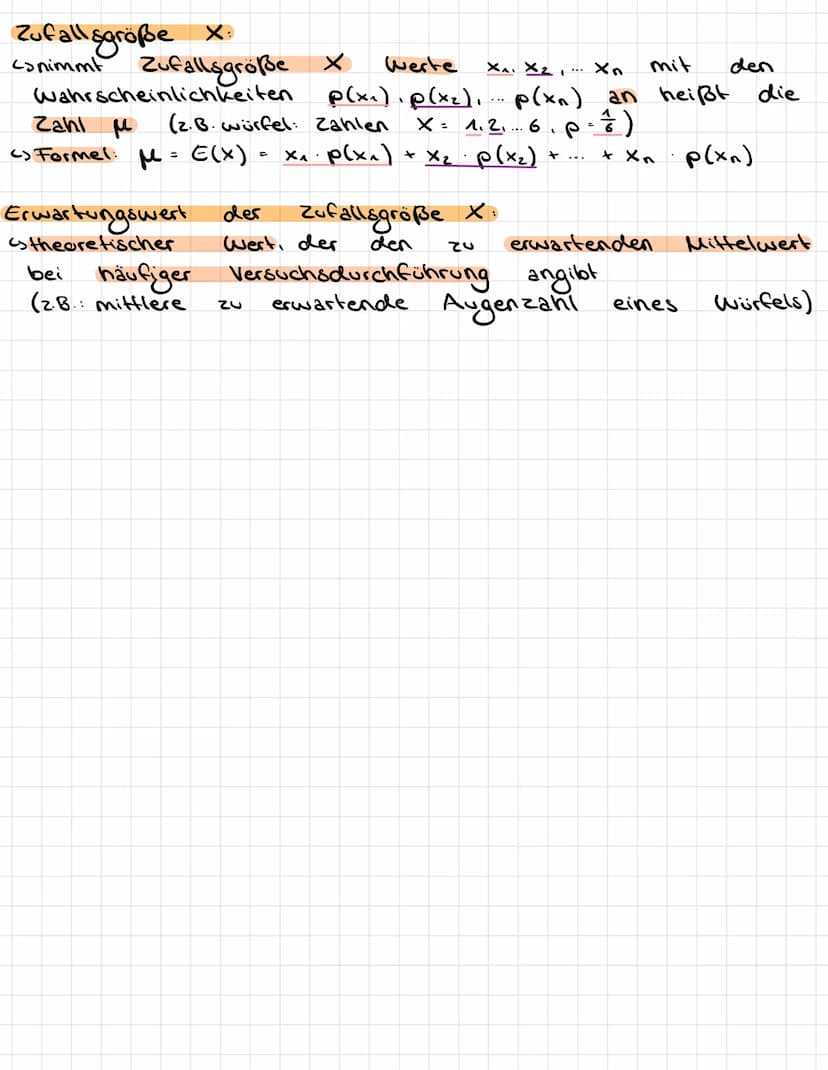 Zufallsgröße X:
↳ nimmt Zufallsgröße X Werte x₁, x₂, ... xₙ mit den
Wahrscheinlichkeiten p(x₁), p(x₂), ... p(xₙ) an heißt die
Zahl μ (z.B. Würfel: Zahlen X = 1, 2, ... 6, p = 1/6)
↳ Formel: μ = E(X) = x₁ · p(x₁) + x₂ · p(x₂) + ... + xₙ · p(xₙ)
Erwartungswert der Zufallsgröße X:
↳ theoretischer Wert, der den zu erwartenden Mittelwert
bei häufiger Versuchsdurchführung angibt
(z.B.: mittlere zu erwartende Augenzahl eines Würfels)